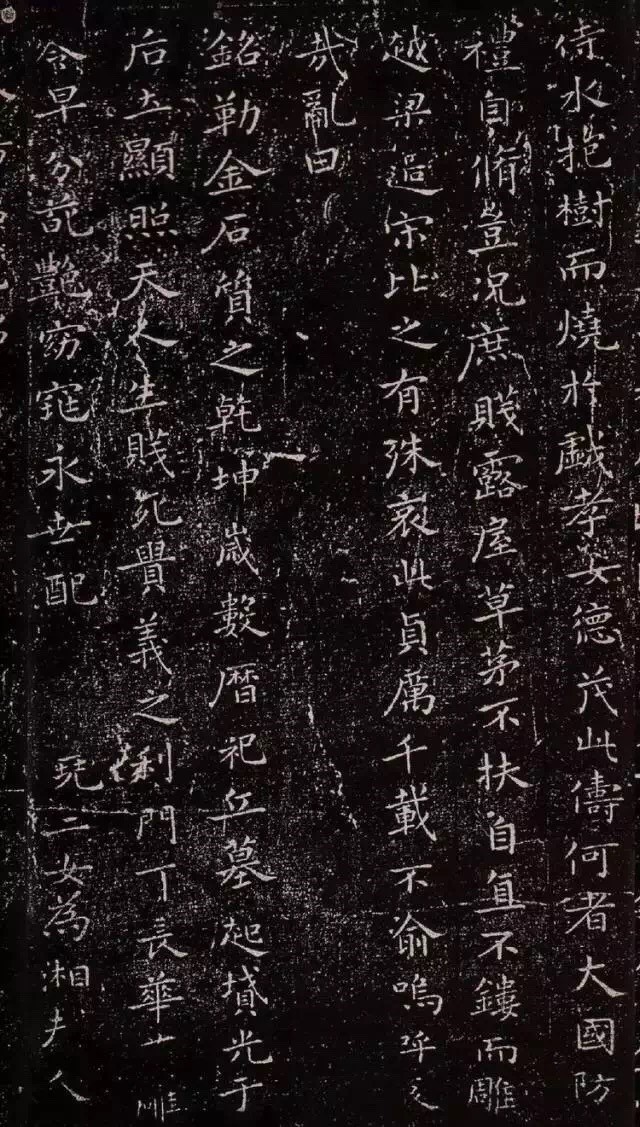 侍水抱樹而燒於戲孝女德茂此儔何者大國防
禮自脩豈况庶賤露屋草茅不扶自直不鏤而雕
越梁過宋比之有殊哀此貞厲千載不渝嗚呼
哉亂曰
銘勒金石質之乾坤歲數曆祀丘墓起墳光于
后土顯照天人生賤死貴義之利門華雕
令早分葩艷窈窕永世配 堯二女為湘夫人